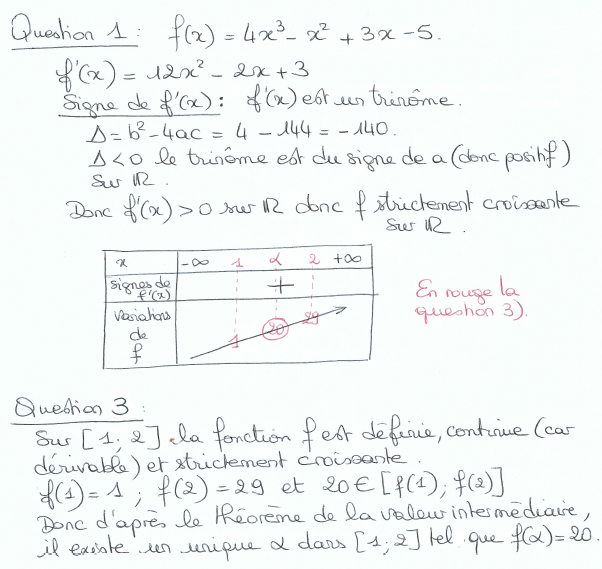 Question 1 : f(x) = 4x³ - x² + 3x - 5.
f'(x) = 12x² - 2x + 3
Signe de f'(x) : f'(x) est un trinôme.
Δ = b² - 4ac = 4 - 144 = -140.
Δ < 0 le trinôme est du signe de a (donc positif)
sur ℝ.
Donc f'(x) > 0 sur ℝ donc f strictement croissante
sur ℝ.
x -∞ 1 α 2 +∞
signes de
f'(x) +
variations
de
f
1 20 29
En rouge la
question 3).
Question 3 :
Sur [1; 2] la fonction f est définie, continue (car
dérivable) et strictement croissante.
f(1) = 1 ; f(2) = 29 et 20 € [f(1); f(2)]
Donc d'après le théorème de la valeur intermédiaire,
il existe un unique α dans [1; 2] tel que f(α) = 20.